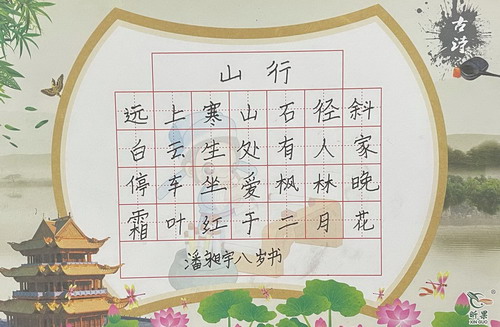 古诗
山行
远上寒山石径斜
白云生处有人家
停车坐爱枫林晚
霜叶红于二月花
潘湘宇八岁书
XIN GUO